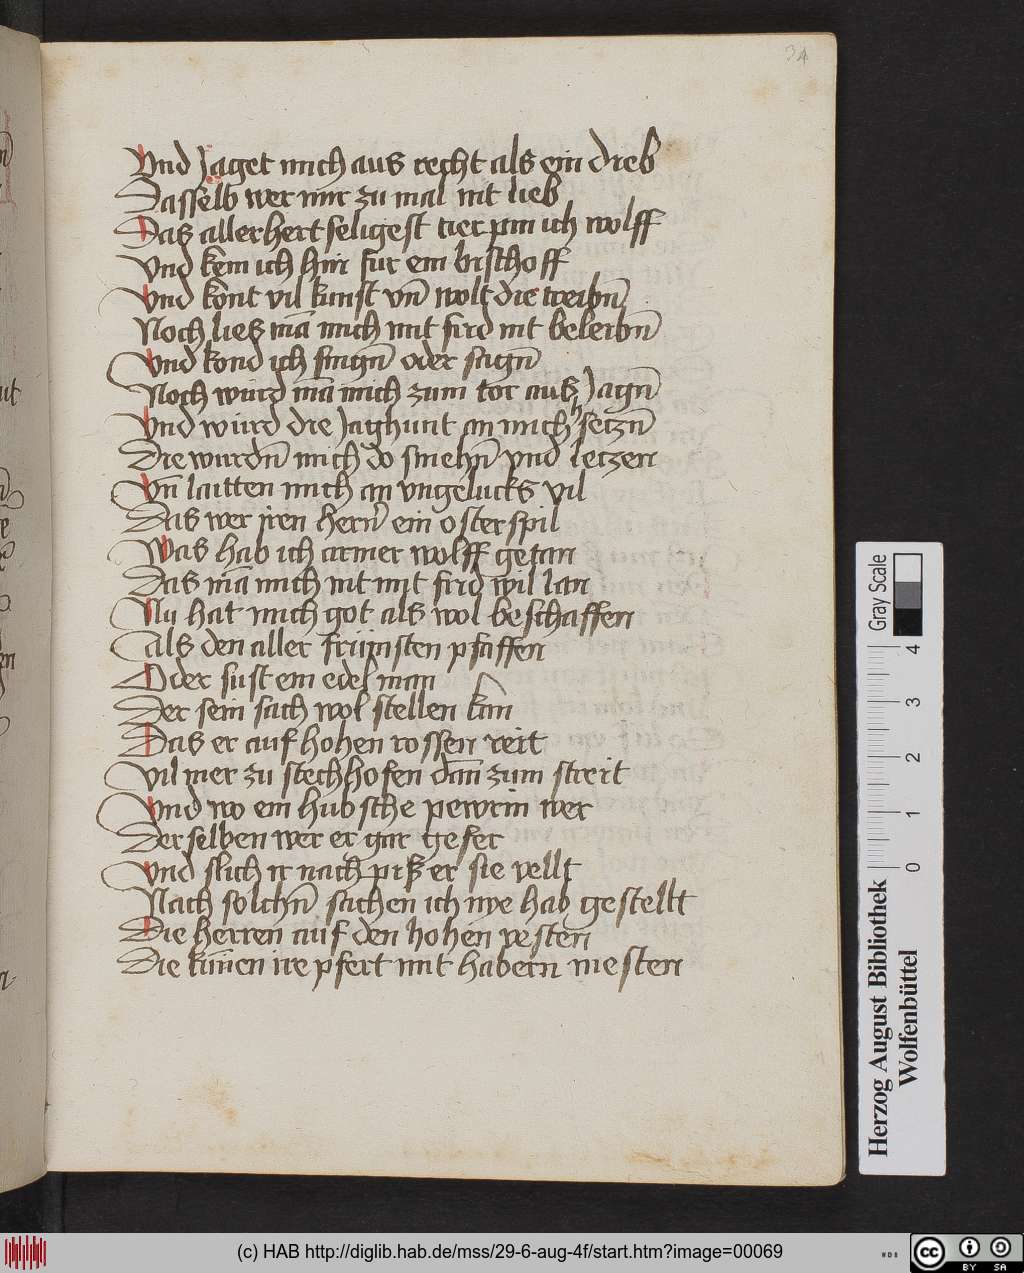 34
Vnd Jaget mich aus recht als ein dieb
Dasselb wer mir zu mal nit lieb
Das allerhertseligest tier pin ich wolff
Vnd kem ich hin fur ein bischoff
Vnd kont vil kunst vn̄ wolt die treibn̄
Noch ließ mā mich mit frid nit beleibn̄
Vnd kond ich singn̄ oder sagn̄
Noch würd mā mich zum tor auß Jagn̄
Vnd würd die Jaghunt an mich hetzn̄
Die wurdn̄ mich do smehn̄ vnd letzen
Vn̄ laitten mich an vngelucks vil
Das wer jren hern̄ ein osterspil
Was hab ich armer wolff getan
Das mā mich nit mit frid wil lan
Nu hat mich got als wol beschaffen
als den aller frümsten pfaffen
Oder sust ein edel man
Der sein sach wol stellen kan
Das er auf hohen rossen reit
Vil mer zu stechhofen dan̄ zum streit
Vnd wo ein hubsche pewrin wer
Derselben wer er gar gefer
Vnd slich ir nach piß er sie vellt
Nach solchn̄ sachen ich nye hab gestellt
Die herren auf den hohen vesten
Die kün̄en ire pfert mit habern mesten
Gray Scale
0 1 2 3 4
Herzog August Bibliothek
Wolfenbüttel
(c) HAB http://diglib.hab.de/mss/29-6-aug-4f/start.htm?image=00069
WDB
cc BY SA